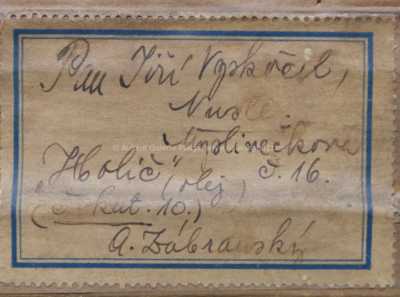 Pan Jiří Vyskočil,
Nusle.
č. 16.
"Holič" (olej)
(č. kat. 10.)
A. Zábranský